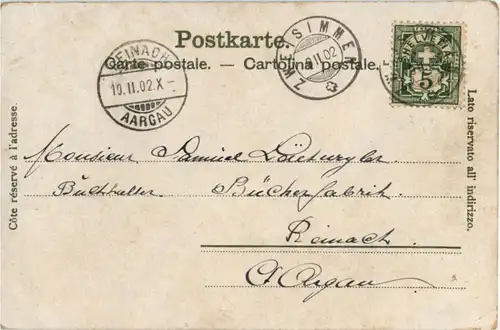 Postkarte.
Carte postale. — Cartolina postale.
REINACH
10.II.02.X-
AARGAU
ZWEISIMMEN
II 02
HELVETIA
5
Côte réservé à l'adresse.
Lato riservato all' indirizzo.
Monsieur Samuel
Buchhalter Bücherfabrik
Reinach
Ct. Argau